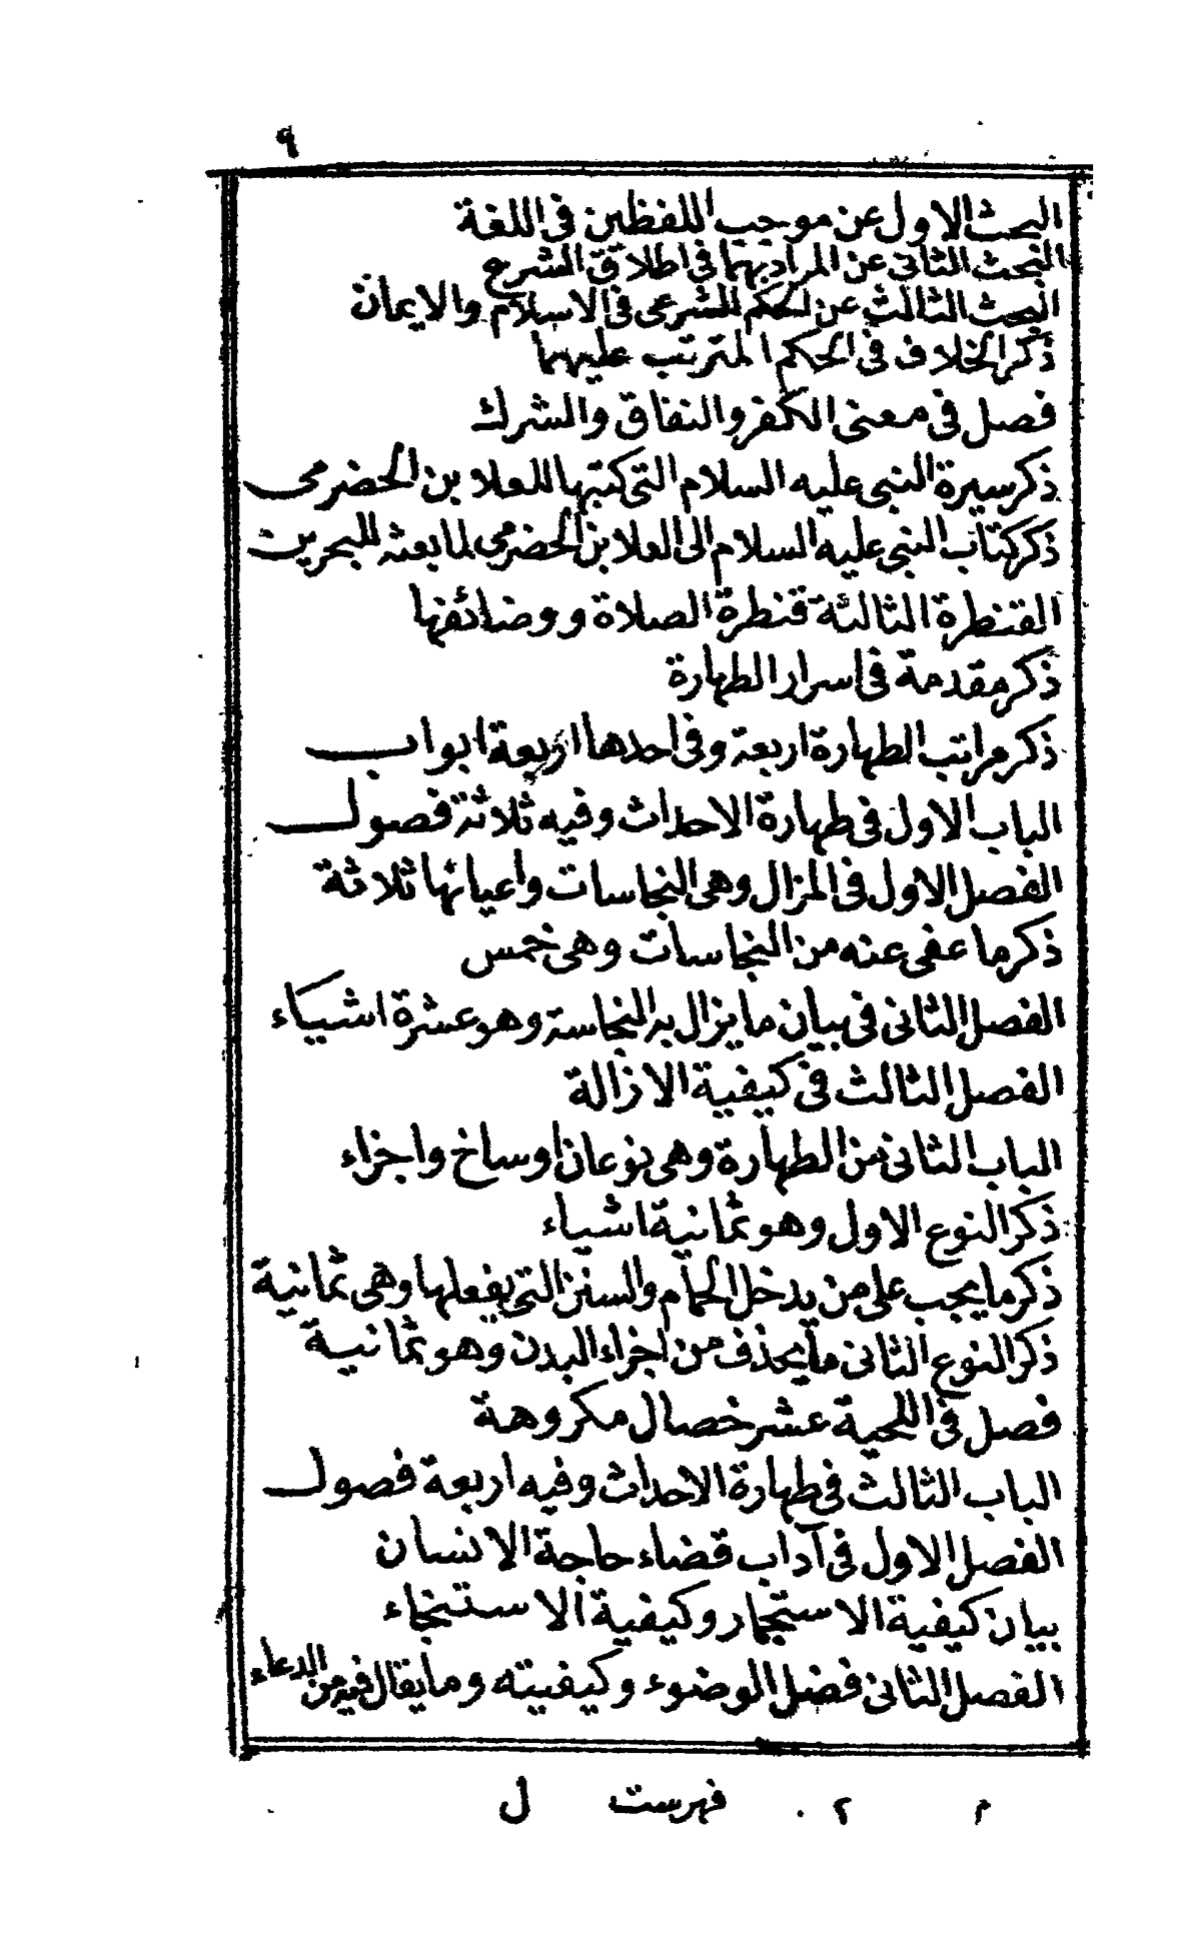 ٩
البحث الاول عن موجب اللفظين فى اللغة
البحث الثانى عن المراد بهما فى اطلاق الشرع
البحث الثالث عن الحكم الشرعى فى الاسلام والايمان
ذكر الخلاف فى الحكم المترتب عليهما
فصل فى معنى الكفر والنفاق والشرك
ذكر سيرة النبى عليه السلام التى كتبها للعلا بن الحضرمى
ذكر كتاب النبى عليه السلام الى العلا بن الحضرمى لما بعثه للبحرين
القنطرة الثالثة قنطرة الصلاة ووضائفها
ذكر مقدمة فى اسرار الطهارة
ذكر مراتب الطهارة اربعة وفى احدها اربعة ابواب
الباب الاول فى طهارة الاحداث وفيه ثلاثة فصول
الفصل الاول فى المزال وهى النجاسات واعيانها ثلاثة
ذكر ما عفى عنه من النجاسات وهى خمس
الفصل الثانى فى بيان ما يزال به النجاسة وهو عشرة اشياء
الفصل الثالث فى كيفية الازالة
الباب الثانى من الطهارة وهى نوعان اوساخ واجزاء
ذكر النوع الاول وهو ثمانية اشياء
ذكر ما يجب على من يدخل الحمام والسنن التى يفعلها وهى ثمانية
ذكر النوع الثانى ما يحذف من اجزاء البدن وهو ثمانية
فصل فى اللحية عشر خصال مكروهة
الباب الثالث فى طهارة الاحداث وفيه اربعة فصول
الفصل الاول فى آداب قضاء حاجة الانسان
بيان كيفية الاستجمار وكيفية الاستنجاء
الفصل الثانى فضل الوضوء وكيفيته وما يقال فيه من الدعاء
م ٢ فهرست ل